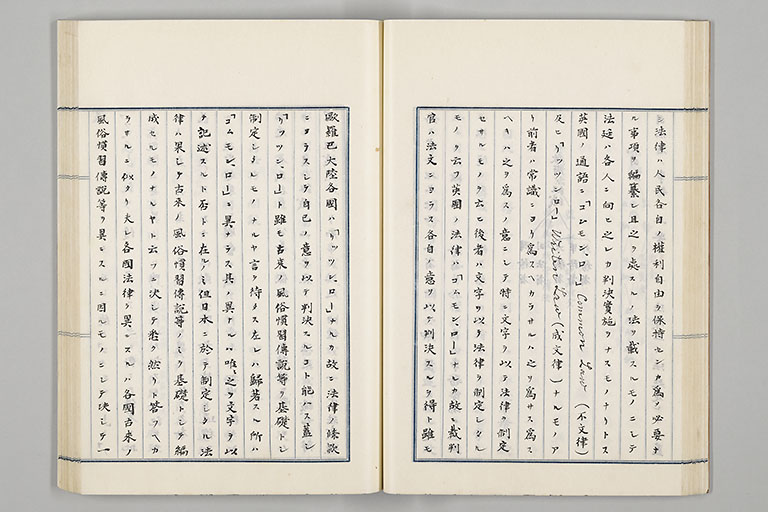 法律ハ人民各自ノ權利自由ヲ保持センカ爲メ必要ナ
ル事項ヲ編纂シ且之ヲ處スルノ法ヲ載スルモノニシテ
法廷ハ各人ニ向ヒ之レカ判決實施ヲナスモノナリトス
英國ノ通語ニ「コムモン、ロー」Common Law(不文律)
及ヒ「リッツン、ロー」Written Law(成文律)ナルモノア
リ前者ハ常識ニヨリ爲スヘカラサルハ之ヲ爲サス爲ス
ヘキハ之ヲ爲スノ意ニシテ特ニ文字ヲ以テ法律ヲ制定
セサルモノヲ云ヒ後者ハ文字ヲ以テ法律ヲ制定シタル
モノヲ云フ英國ノ法律ハ「コムモン、ロー」ナルカ故ニ裁判
官ハ法文ニヨラス各自ノ意ヲ以テ判決スルヲ得ト雖モ
歐羅巴大陸各國ハ「リッツン、ロー」ナルカ故ニ法律ノ條款
ニヨラスシテ自己ノ意ヲ以テ判決スルコト能ハス蓋シ
「リッツン、ロー」ト雖モ古來ノ風俗慣習傳説等ヲ基礎トシ
制定シタルモノナルヤ言ヲ待タス左レハ歸著スル所ハ
「コムモン、ロー」ニ異ナラス其ノ異ナルハ唯之ヲ文字ヲ以
テ記述スルト否トニ在ルノミ但日本ニ於テ制定シタル法
律ハ果シテ古來ノ風俗慣習傳説等ノミヲ基礎トシテ編
成セルモノナルヤト云フニ決シテ悉ク然リト答フヘカ
ラサルニ似タリ夫レ各國法律ヲ異ニスルハ各國古來ノ
風俗慣習傳説等ヲ異ニスルニ因ルモノニシテ決シテ一